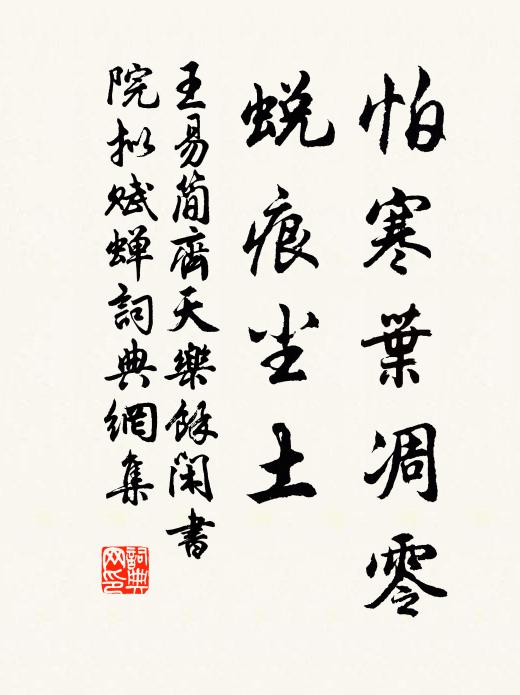 怕寒葉凋零
蜕痕尘土
王易简齊天樂餘閑書
院拟赋蝉詞典網集
詞典
网印